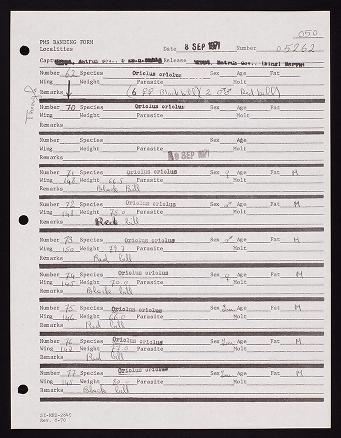 050
PMS BANDING FORM
Localities Date 8 SEP 1971 Number 05262
Capt Matruh Gov., Release Matruh Gov.,
Number 62 Species Oriolus oriolus Sex Age Fat
Wing Weight Parasite Molt
Remarks (6 Black bill) 2 Red bill)
Through
Number 70 Species Oriolus oriolus Sex Age Fat
Wing Weight Parasite Molt
Remarks
8 SEP 1971
Number 71 Species Oriolus oriolus Sex ♀ Age Fat M
Wing 148 Weight 66.5 Parasite Molt
Remarks Black Bill
Number 72 Species Oriolus oriolus Sex ♂ Age Fat M
Wing 148 Weight 75.0 Parasite Molt
Remarks Red bill
Number 73 Species Oriolus oriolus Sex ♂ Age Fat M
Wing 150 Weight 79.7 Parasite Molt
Remarks Red bill
Number 74 Species Oriolus oriolus Sex ♀ Age Fat M
Wing 145 Weight 70.0 Parasite Molt
Remarks Black bill
Number 75 Species Oriolus oriolus Sex Age Fat M
Wing 146 Weight 68.0 Parasite Molt
Remarks Red bill
Number 76 Species Oriolus oriolus Sex Age Fat M
Wing 148 Weight 77.0 Parasite Molt
Remarks Red bill
Number 77 Species Oriolus oriolus Sex Age Fat M
Wing 148 Weight 80 Parasite Molt
Remarks Black bill
SI-MNH-2640
Rev. 6-70